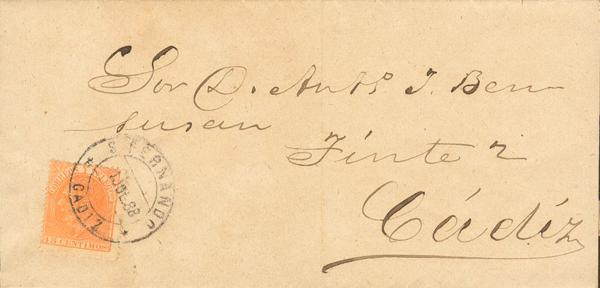 Sor D. Anto J. Ben-
susan
Tinte 2
Cádiz
S. FERNANDO
1 JUL 88
CADIZ
15 CENTIMOS